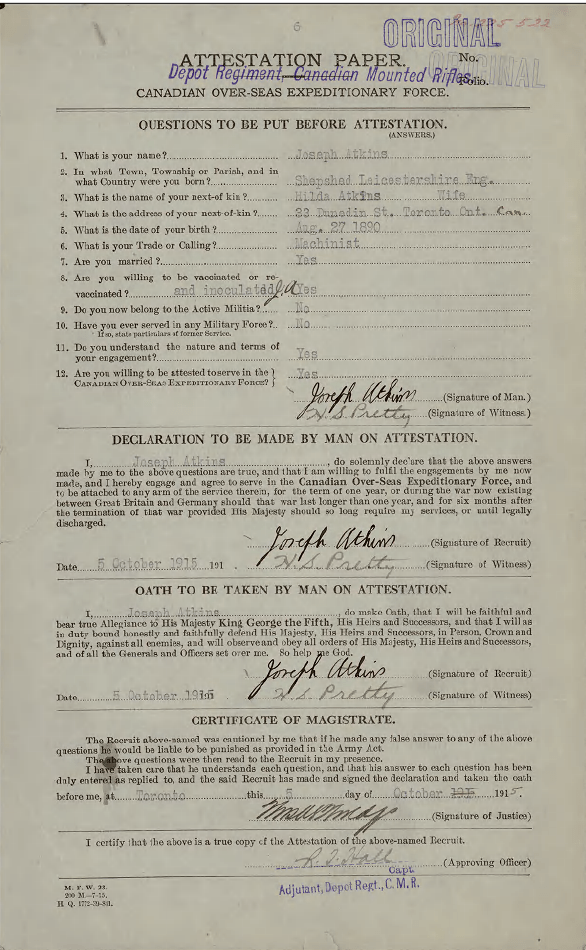 6
ORIGINAL
ORIGINAL
ATTESTATION PAPER. No.
Depot Regiment, Canadian Mounted Rifles. Folio.
CANADIAN OVER-SEAS EXPEDITIONARY FORCE.
QUESTIONS TO BE PUT BEFORE ATTESTATION.
(ANSWERS.)
1. What is your name? Joseph Atkins
2. In what Town, Township or Parish, and in
what Country were you born? Shepshed Leicestershire Eng.
3. What is the name of your next-of kin? Hilda Atkins Wife
4. What is the address of your next-of-kin? 23 Dunedin St. Toronto Ont. Can.
5. What is the date of your birth? Aug. 27 1890
6. What is your Trade or Calling? Machinist
7. Are you married? Yes
8. Are you willing to be vaccinated or re-
vaccinated? and inoculated J.A Yes
9. Do you now belong to the Active Militia? No
10. Have you ever served in any Military Force? No
If so, state particulars of former Service.
11. Do you understand the nature and terms of
your engagement? Yes
12. Are you willing to be attested to serve in the } Yes
CANADIAN OVER-SEAS EXPEDITIONARY FORCE? }
Joseph Atkins (Signature of Man.)
H.S. Pretty (Signature of Witness.)
DECLARATION TO BE MADE BY MAN ON ATTESTATION.
I, Joseph Atkins, do solemnly declare that the above answers
made by me to the above questions are true, and that I am willing to fulfil the engagements by me now
made, and I hereby engage and agree to serve in the Canadian Over-Seas Expeditionary Force, and
to be attached to any arm of the service therein, for the term of one year, or during the war now existing
between Great Britain and Germany should that war last longer than one year, and for six months after
the termination of that war provided His Majesty should so long require my services, or until legally
discharged.
Joseph Atkins (Signature of Recruit)
Date 5 October 1915 191 . H.S. Pretty (Signature of Witness)
OATH TO BE TAKEN BY MAN ON ATTESTATION.
I, Joseph Atkins, do make Oath, that I will be faithful and
bear true Allegiance to His Majesty King George the Fifth, His Heirs and Successors, and that I will as
in duty bound honestly and faithfully defend His Majesty, His Heirs and Successors, in Person, Crown and
Dignity, against all enemies, and will observe and obey all orders of His Majesty, His Heirs and Successors,
and of all the Generals and Officers set over me. So help me God.
Joseph Atkins (Signature of Recruit)
Date 5 October 1915 H.S. Pretty (Signature of Witness)
CERTIFICATE OF MAGISTRATE.
The Recruit above-named was cautioned by me that if he made any false answer to any of the above
questions he would be liable to be punished as provided in the Army Act.
The above questions were then read to the Recruit in my presence.
I have taken care that he understands each question, and that his answer to each question has been
duly entered as replied to, and the said Recruit has made and signed the declaration and taken the oath
before me, at Toronto this 5 day of October 1915 1915.
(Signature of Justice)
I certify that the above is a true copy of the Attestation of the above-named Recruit.
Hall (Approving Officer)
Capt.
Adjutant, Depot Regt., C. M. R.
M. F. W. 23.
200 M.—7-15.
H. Q. 1772-39-841.